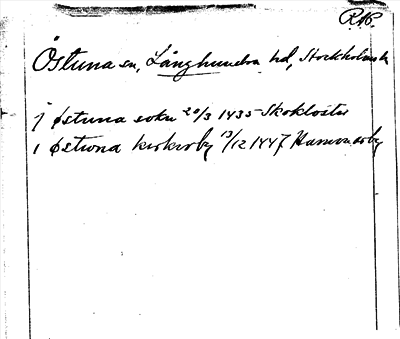 R.A.P.
Östuna sn, Långhundra hd, Stockholms l.
j østuna sokn 20/3 1435 Skokloster
i østwna kirkioby 13/12 1447 Hammarby